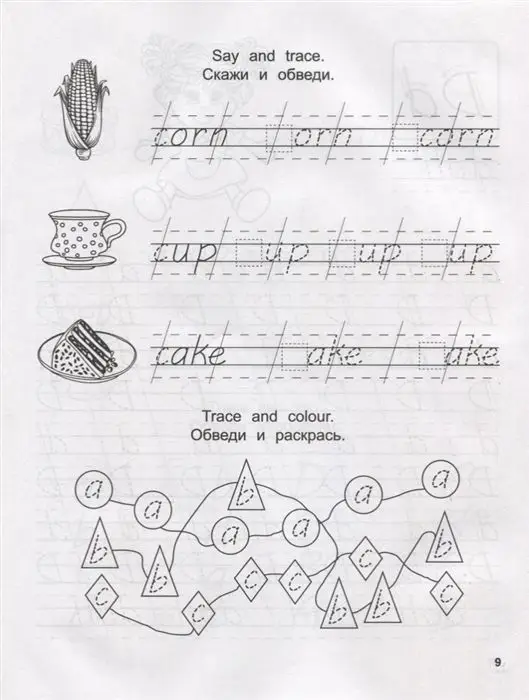 Say and trace.
Скажи и обведи.
corn orn corn
cup up up up
cake ake ake
Trace and colour.
Обведи и раскрась.
a a b a a a a
b b c c c b
c c b b c
9